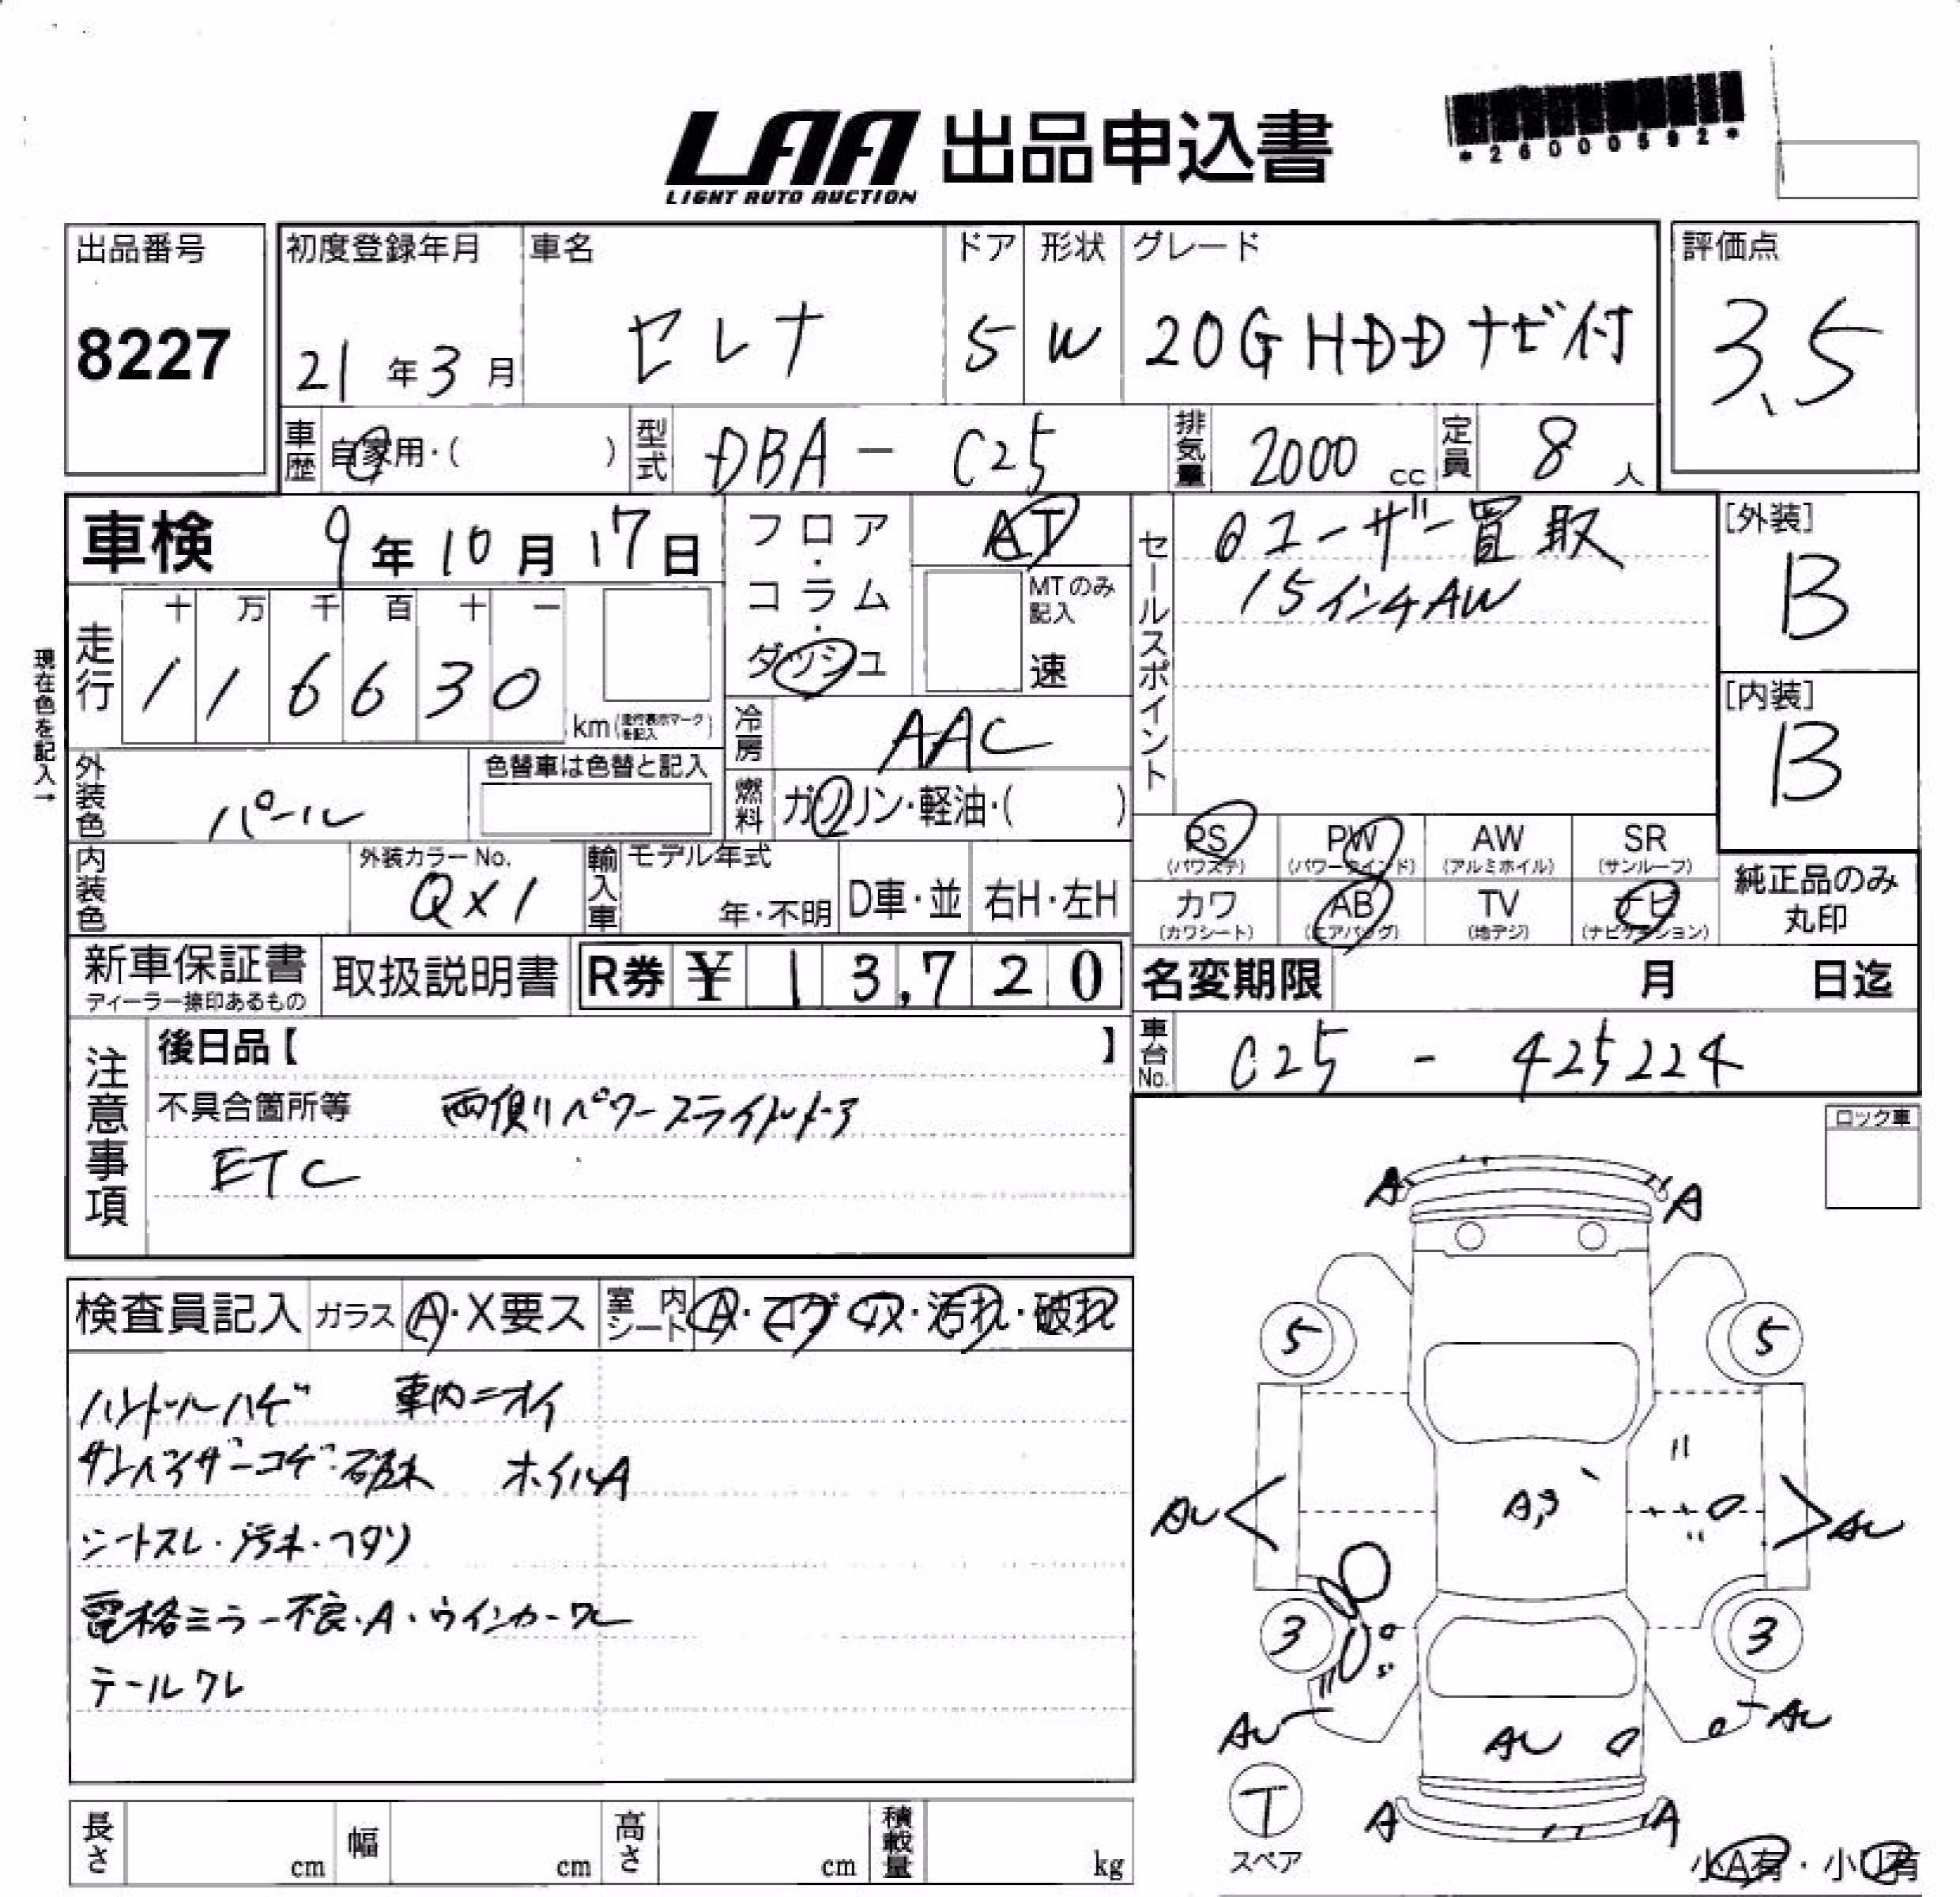 LAA 出品申込書
LIGHT AUTO AUCTION
*26000592*
出品番号
8227
初度登録年月
21年3月
車名
セレナ
ドア
5
形状
W
グレード
20G HDDナビ付
評価点
3.5
車歴
自家用・( )
型式
DBA-C25
排気量
2000 cc
定員
8人
車検 9年10月17日
フロア・コラム・ダッシュ
AT
MTのみ記入
速
セールスポイント
@ユーザー買取
15インチAW
[外装]
B
[内装]
B
現在色を記入→
走行
十 万 千 百 十 一
1 1 6 6 3 0
km(走行表示マークを記入)
冷房
AAC
外装色
パール
色替車は色替と記入
燃料
ガソリン・軽油・( )
PS (パワステ)
PW (パワーウインド)
AW (アルミホイル)
SR (サンルーフ)
内装色
外装カラーNo.
QX1
輸入車
モデル年式
年・不明
D車・並
右H・左H
カワ (カワシート)
AB (エアバッグ)
TV (地デジ)
ナビ (ナビゲーション)
純正品のみ丸印
新車保証書
ディーラー捺印あるもの
取扱説明書
R券 ¥13,720
名変期限 月 日迄
車台No.
C25 - 425224
注意事項
後日品【 】
不具合箇所等 両側リパワースライドドア
ETC
ロック車
検査員記入
ガラス A・X要ス
室内シート A・コゲ・穴・汚れ・破れ
ハンドルハゲ 車内ニオイ
サンバイザーコゲ・破れ ホイルA
シートスレ・汚れ・ヘタリ
電格ミラー不良・A・ウインカーワレ
テールワレ
A A
5 5
AU A AU
3 3
AU AU AU
T
スペア
A A
小A有・小U有
長さ cm
幅 cm
高さ cm
積載量 kg